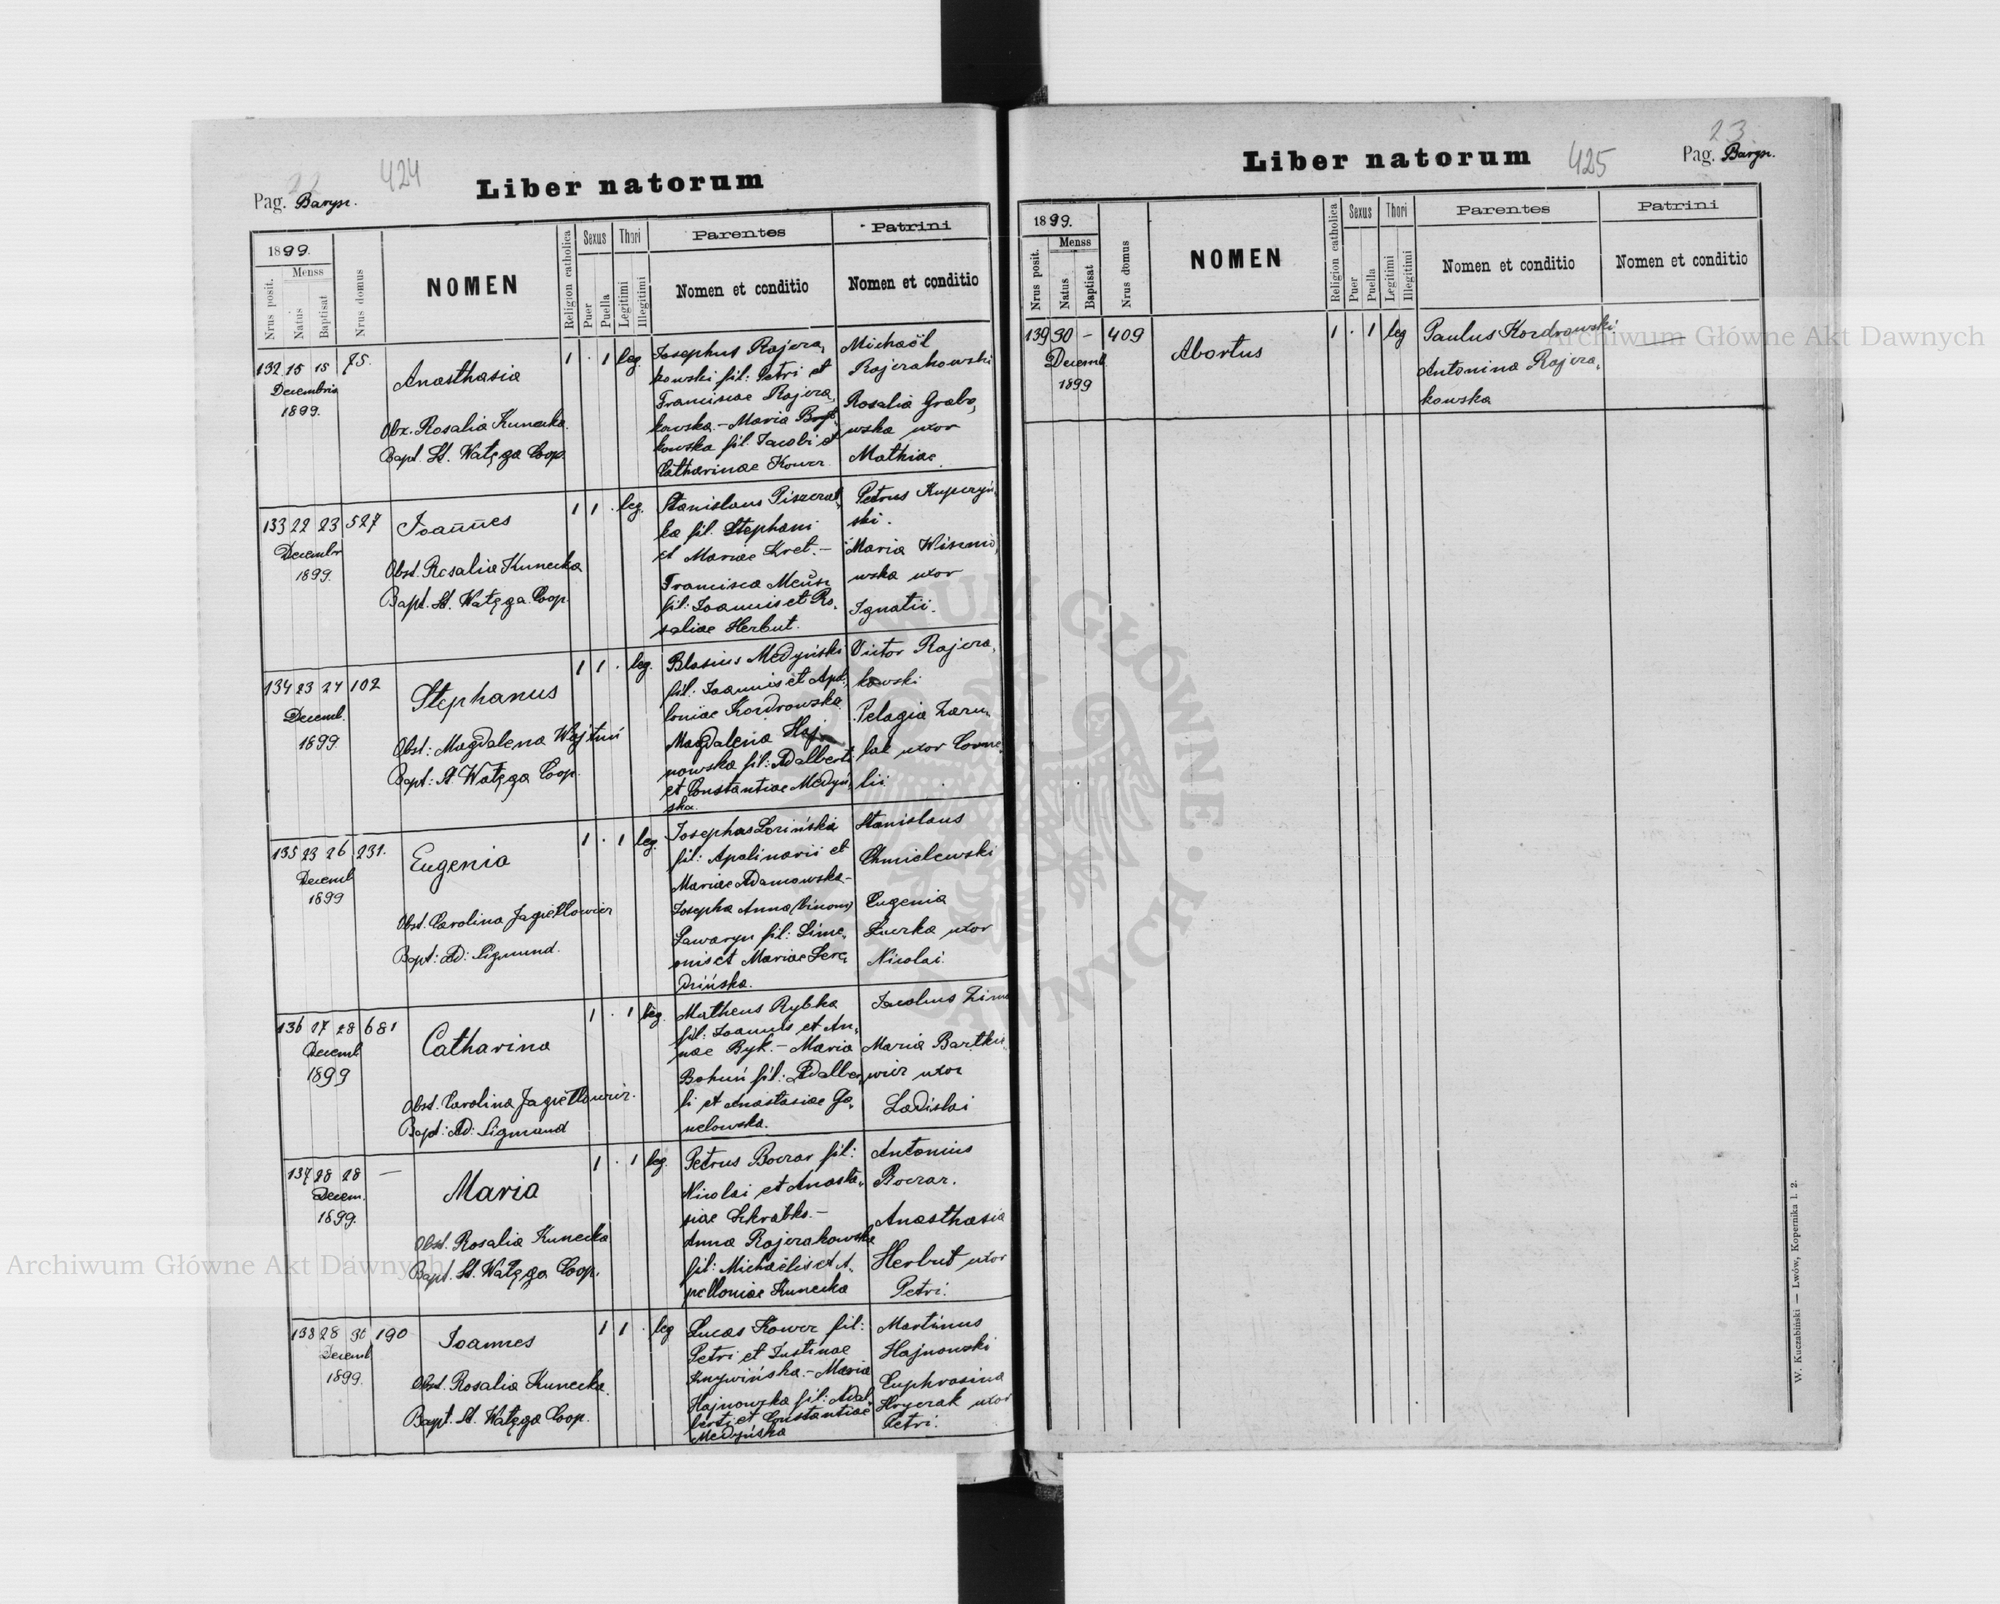 22
424
Liber natorum
Pag. Barysz.
1899.
Nrus posit.
Menss
Natus
Baptisat
Nrus domus
NOMEN
Religion catholica
Sexus
Puer
Puella
Thori
Legitimi
Illegitimi
Parentes
Nomen et conditio
Patrini
Nomen et conditio
132 15 15 75.
Decembris
1899.
Anasthasia
Obst. Rosalia Kunecka
Bapt. St. Watęga Coop.
1 . 1 leg.
Josephus Rajcza,
kowski fil: Petri et
Franciscae Rajcza,
kowska. - Maria
kowska fil. Jacobi et
Catharinae Kowcz.
Michaël
Rajczakowski
Rosalia Grabo,
wska uxor
Mathiae
133 22 23 527
Decembr
1899.
Joannes
Obst. Rosalia Kunecka
Bapt. St. Watęga Coop.
1 1 . leg.
Stanislaus Piszczat,
ka fil. Stephani
et Mariae Kret. -
Francisca
fil: Joannis et Ro,
saliae Herbut.
Petrus Kuperyń,
ski.
Maria Wisznio,
wska uxor
Ignatii.
134 23 24 102
Decemb.
1899.
Stephanus
Obst: Magdalena Wojtuń
Bapt: St Watęga Coop.
1 1 . leg.
Blasius Medyński
fil. Joannis et Apo,
loniae Kordrowska
Magdalena Haj-
nowska fil: Adalberti
et Constantiae Medyń,
ska.
Victor Rajcza,
kowski
Pelagia Zaru,
lak uxor Corne,
lii
135 23 26 231.
Decemb
1899
Eugenia
Obst. Carolina Jagiełłowicz
Bapt: Ad: Sigmund.
1 . 1 leg.
Josephus Loziński
fil: Apolinarii et
Mariae Adamowska-
Josepha Anna (binom)
Sawaryn fil: Sime,
onis et Mariae Sere,
dzińska.
Stanislaus
Chmielewski
Eugenia
Luczka uxor
Nicolai.
136 27 28 681
Decemb
1899
Catharina
Obst. Carolina Jagiełłowicz.
Bapt: Ad: Sigmund
1 . 1 leg.
Matheus Rybka
fil: Joannis et An,
nae Byk. - Maria
Bohuń fil: Adalber,
ti et Anastasiae Ga,
nelowska.
Jacobus Zima
Maria Bartko,
wicz uxor
Ladislai
137 28 28 —
Decem.
1899.
Maria
Obst. Rosalia Kunecka
Bapt. St. Watęga Coop.
1 . 1 leg.
Petrus Boczar fil:
Nicolai et Anasta,
siae Sikratka. -
Anna Rajczakowska
fil: Michaëlis et A,
polloniae Kunecka
Antonius
Boczar.
Anasthasia
Herbut uxor
Petri.
138 28 30 190
Decemb
1899.
Joannes
Obst. Rosalia Kunecka.
Bapt. St. Watęga Coop.
1 1 . leg
Lucas Kowcz fil:
Petri et Justinae
Krzywińska. - Maria
Hajnowska fil: Adal,
berti et Constantiae
Medyńska
Martinus
Hajnowski
Euphrosina
Hryczak uxor
Petri.
23.
Liber natorum
425
Pag. Barysz.
1899.
Nrus posit.
Menss
Natus
Baptisat
Nrus domus
NOMEN
Religion catholica
Sexus
Puer
Puella
Thori
Legitimi
Illegitimi
Parentes
Nomen et conditio
Patrini
Nomen et conditio
139 30 - 409
Decemb.
1899
Abortus
1 . 1 leg
Paulus Kordrowski
Antonina Rajcza,
kowska
W. Kuczabiński — Lwów, Kopernika l. 2.
Archiwum Główne Akt Dawnych
Archiwum Główne Akt Dawnych
ARCHIWUM GŁÓWNE AKT DAWNYCH